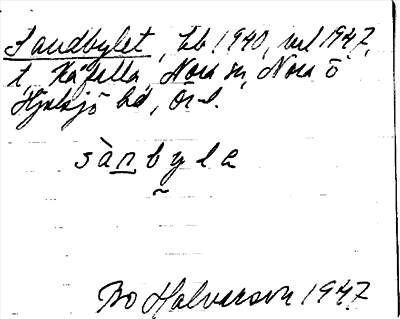 Sandbylet, tb 1940, vel 1947,
t. Kåfalla, Nora sn, Nora o
Hjulsjö bd, Ör. l.
sànbyla
Bo Halvarson 1947